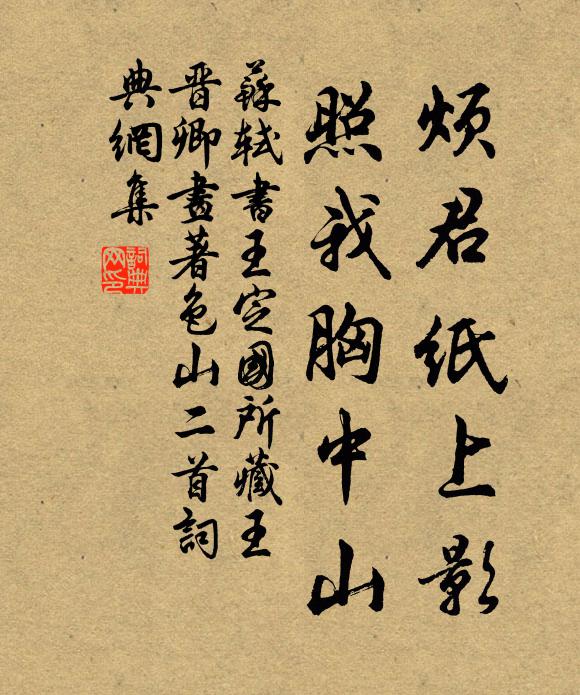 煩君紙上影
照我胸中山
蘇軾書王定國所藏王
晉卿畫著色山二首詞
典網集
詞典網印